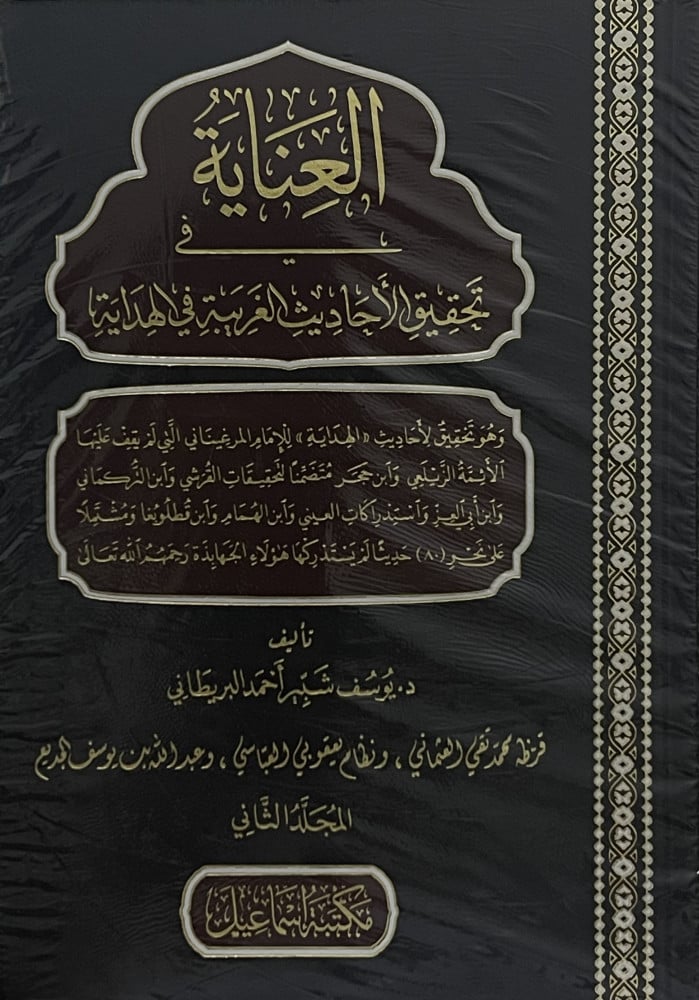 العِنَايَةُ
في
تَحْقِيقِ الأَحَادِيثِ الغَرِيبَةِ فِي الهِدَايَةِ
وَهُوَ تَحْقِيقٌ لأَحَادِيثِ «الهِدَايَةِ» لِلإِمَامِ المرغِينَاني الَّتِي لَمْ يَقِفْ عَلَيْهَا
الأَئِمَّةُ الزَّيْلَعِي وَابن حَجَر مُتَضَمِّنًا لِتَحْقِيقَاتِ القُرَشِي وَابن التُّركمَاني
وَابن أَبِي العِزِ وَاسْتِدْرَاكَاتِ العَينِي وَابن الهُمَام وَابن قُطلُوبُغَا وَمُشْتَمِلًا
عَلَى نَحْوِ (٨٠) حَدِيثًا لَمْ يَسْتَدْرِكْهَا هَؤُلَاءِ الجَهَابِذَة رَحِمَهُمُ اللهُ تَعَالَى
تأليف
د. يُوسُف شَبِّير أَحْمَد البريطَاني
قرظه محمد تقي العثماني ، ونظام يعقوبي العبّاسي ، وعبد الله بن يوسف الجديع
المُجَلَّدُ الثَّانِي
مَكْتَبَةُ إِسْمَاعِيل